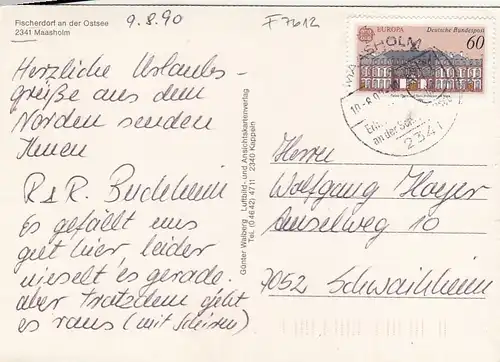 Fischerdorf an der Ostsee
2341 Maasholm
9.8.90
F 7612
Herzliche Urlaubs-
grüße aus dem
Norden senden
Ihnen
R & R. Buckheim
Es gefällt uns
gut hier, leider
nieselt es gerade.
aber trotzdem geht
es raus (mit Schirm)
Günter Walberg · Luftbild- und Ansichtskartenverlag
Tel. (0 46 42) 47 11 · 2340 Kappeln
EUROPA Deutsche Bundespost
60
MAASHOLM
an der Schlei
2341
Herrn
Wolfgang Hoyer
Amselweg 10
7052 Schwaikheim